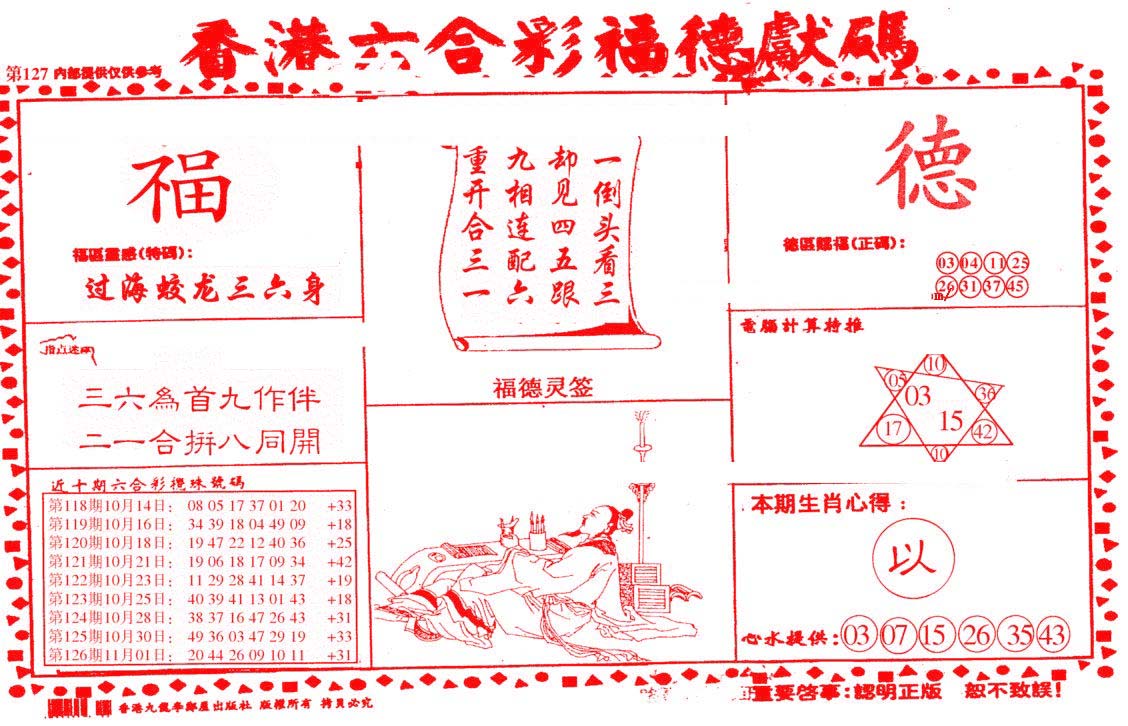 香港六合彩福德獻碼
第127 内部提供仅供参考
福
福區靈感(特碼):
过海蛟龙三六身
一倒头看三
却见四五跟
九相连配六
重开合三一
福德灵签
德
德區賜福(正碼):
03 04 11 25
26 31 37 45
指点迷
三六為首九作伴
二一合拼八同開
電腦計算特推
10
05 03 36
17 15 42
10
近十期六合彩攪珠號碼
第118期10月14日: 08 05 17 37 01 20 +33
第119期10月16日: 34 39 18 04 49 09 +18
第120期10月18日: 19 47 22 12 40 36 +25
第121期10月21日: 19 06 18 17 09 34 +42
第122期10月23日: 11 29 28 41 14 37 +19
第123期10月25日: 40 39 41 13 01 43 +18
第124期10月28日: 38 37 16 47 26 43 +31
第125期10月30日: 49 36 03 47 29 19 +33
第126期11月01日: 20 44 26 09 10 11 +31
本期生肖心得:
以
心水提供: 03 07 15 26 35 43
重要啓事:認明正版 恕不致誤!
香港九龍李鄭屋出版社 版權所有 拷貝必究